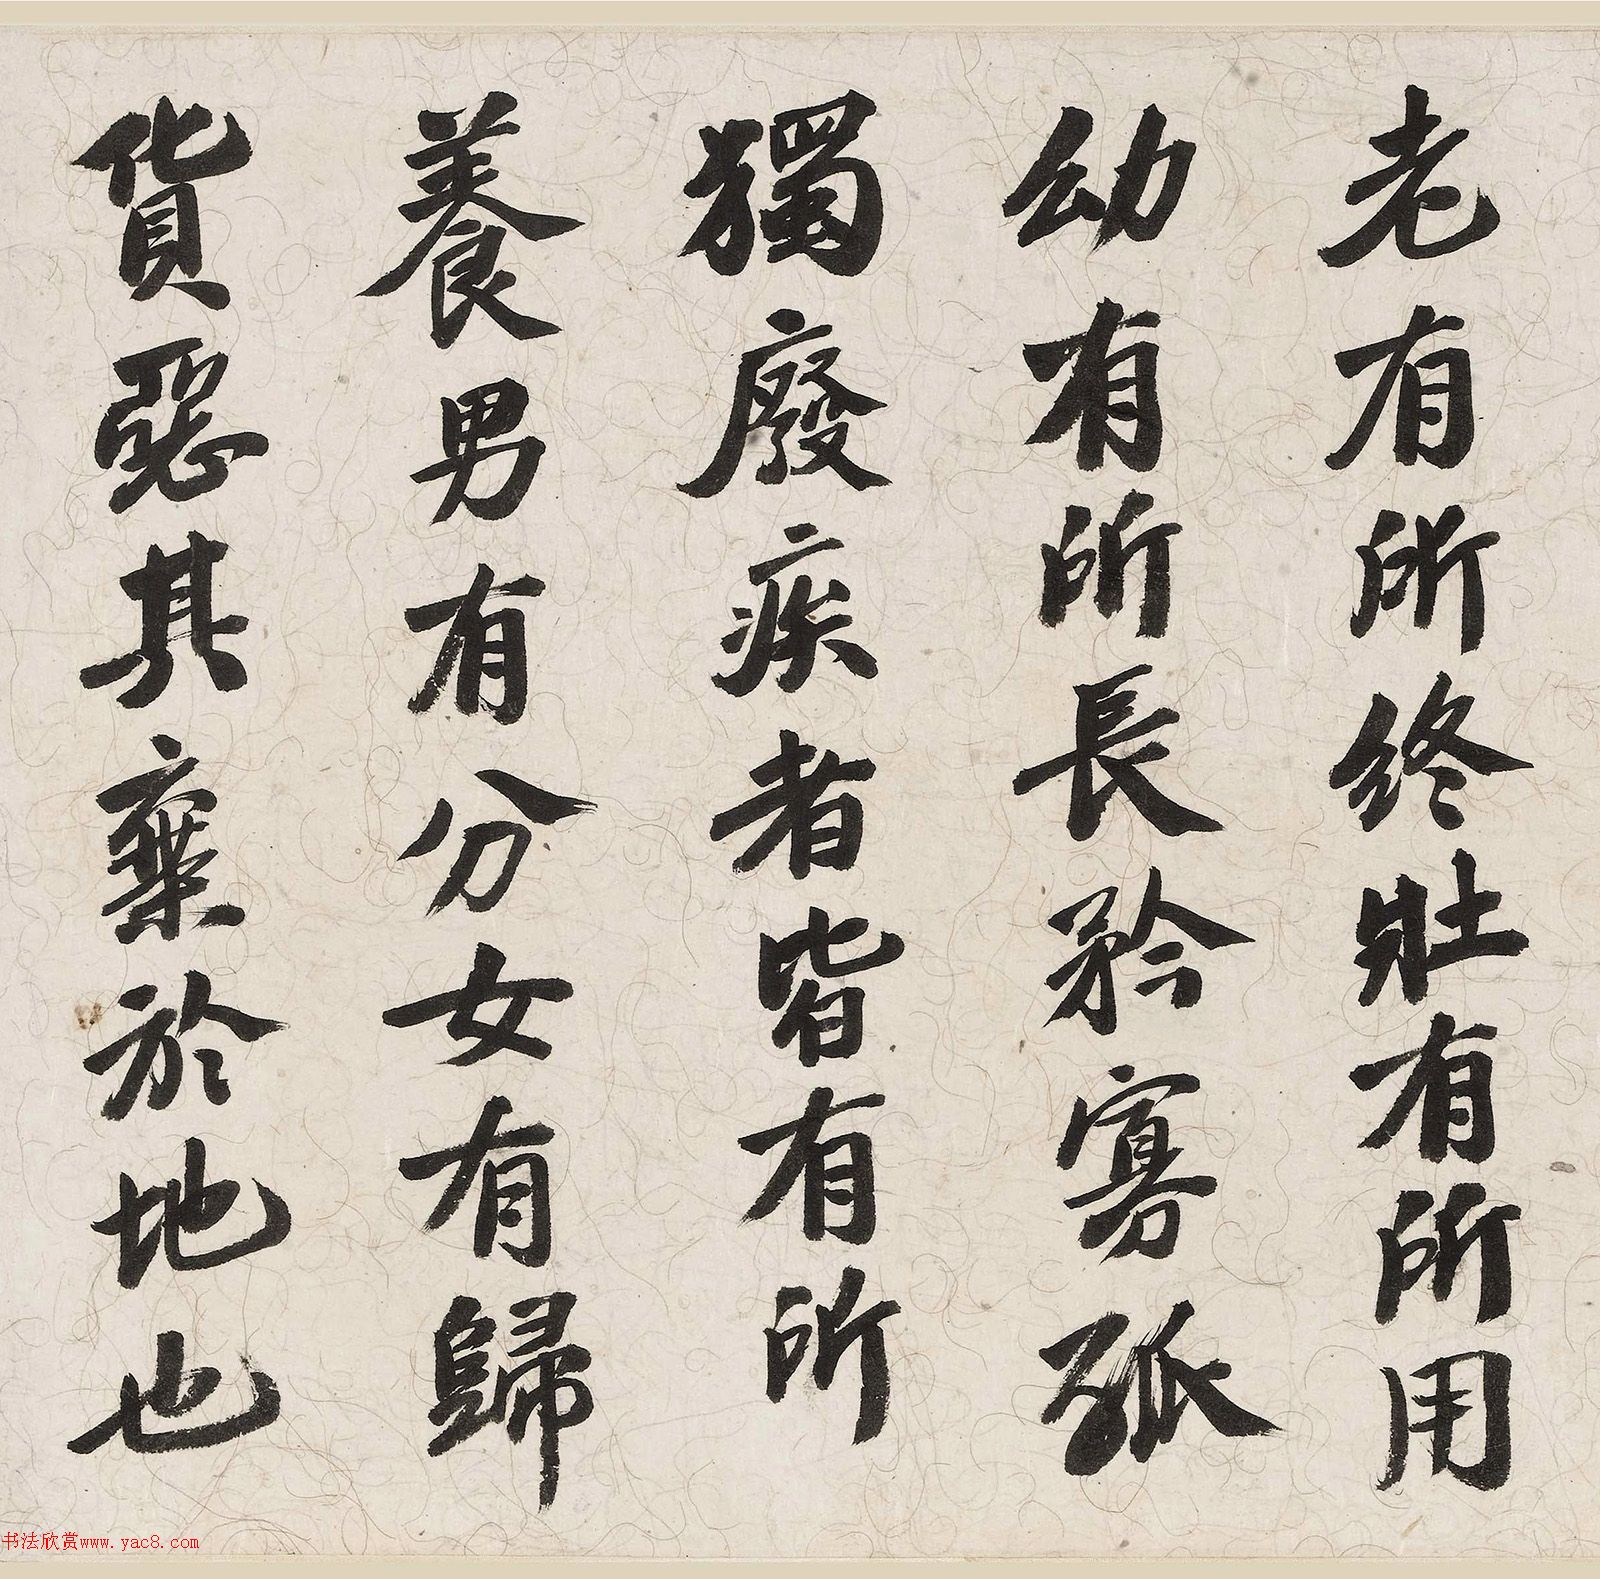 老有所終壯有所用
幼有所長矜寡孤
獨廢疾者皆有所
養男有分女有歸
貨惡其棄於地也
书法欣赏www.yac8.com